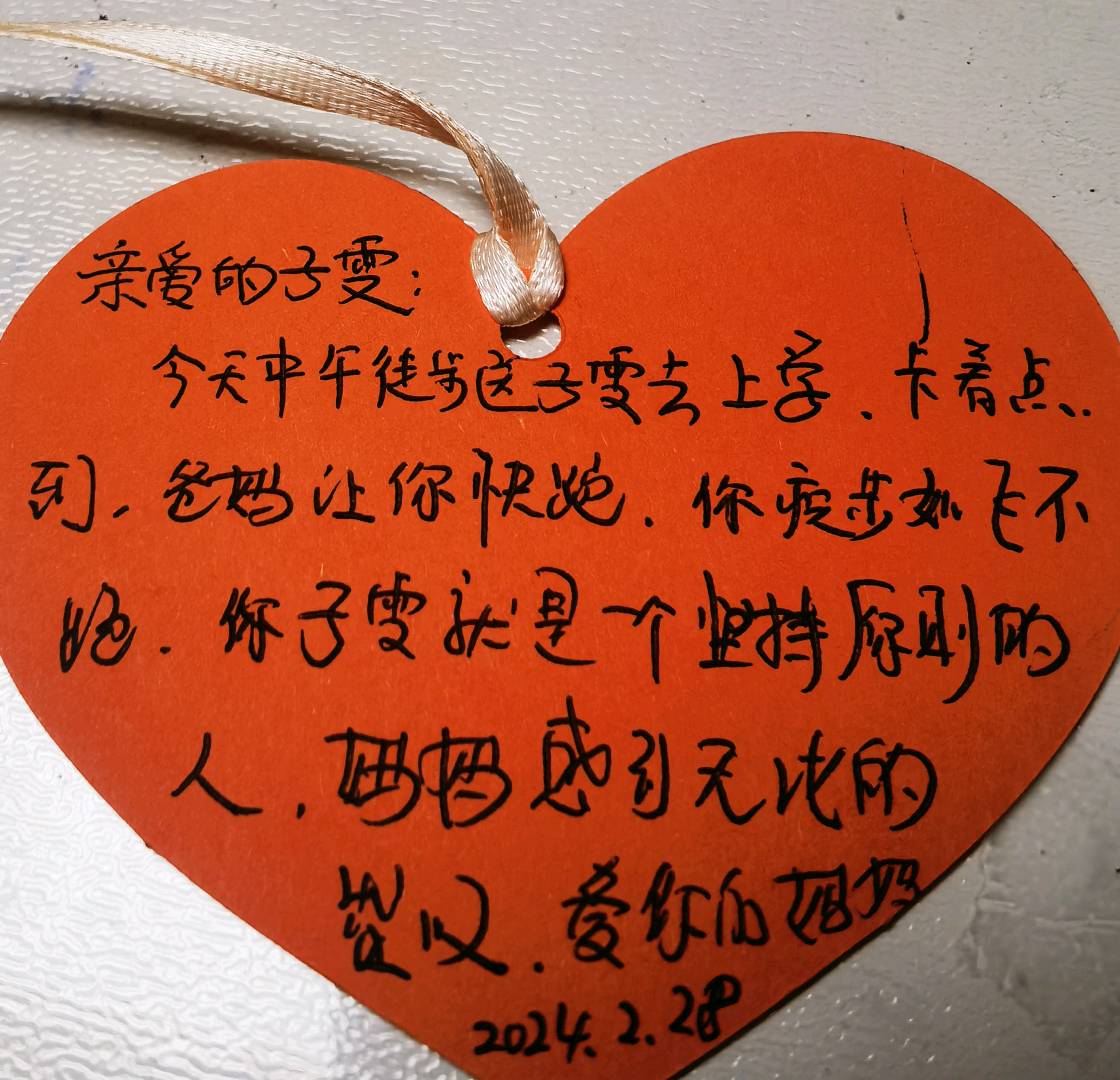 亲爱的子雯:
今天中午徒步送子雯去上学.卡着点.
到.爸妈让你快跑.你疾步如飞不
跑.你子雯就是一个坚持原则的
人.妈妈感到无比的
赞叹.爱你的妈妈
2024.2.28